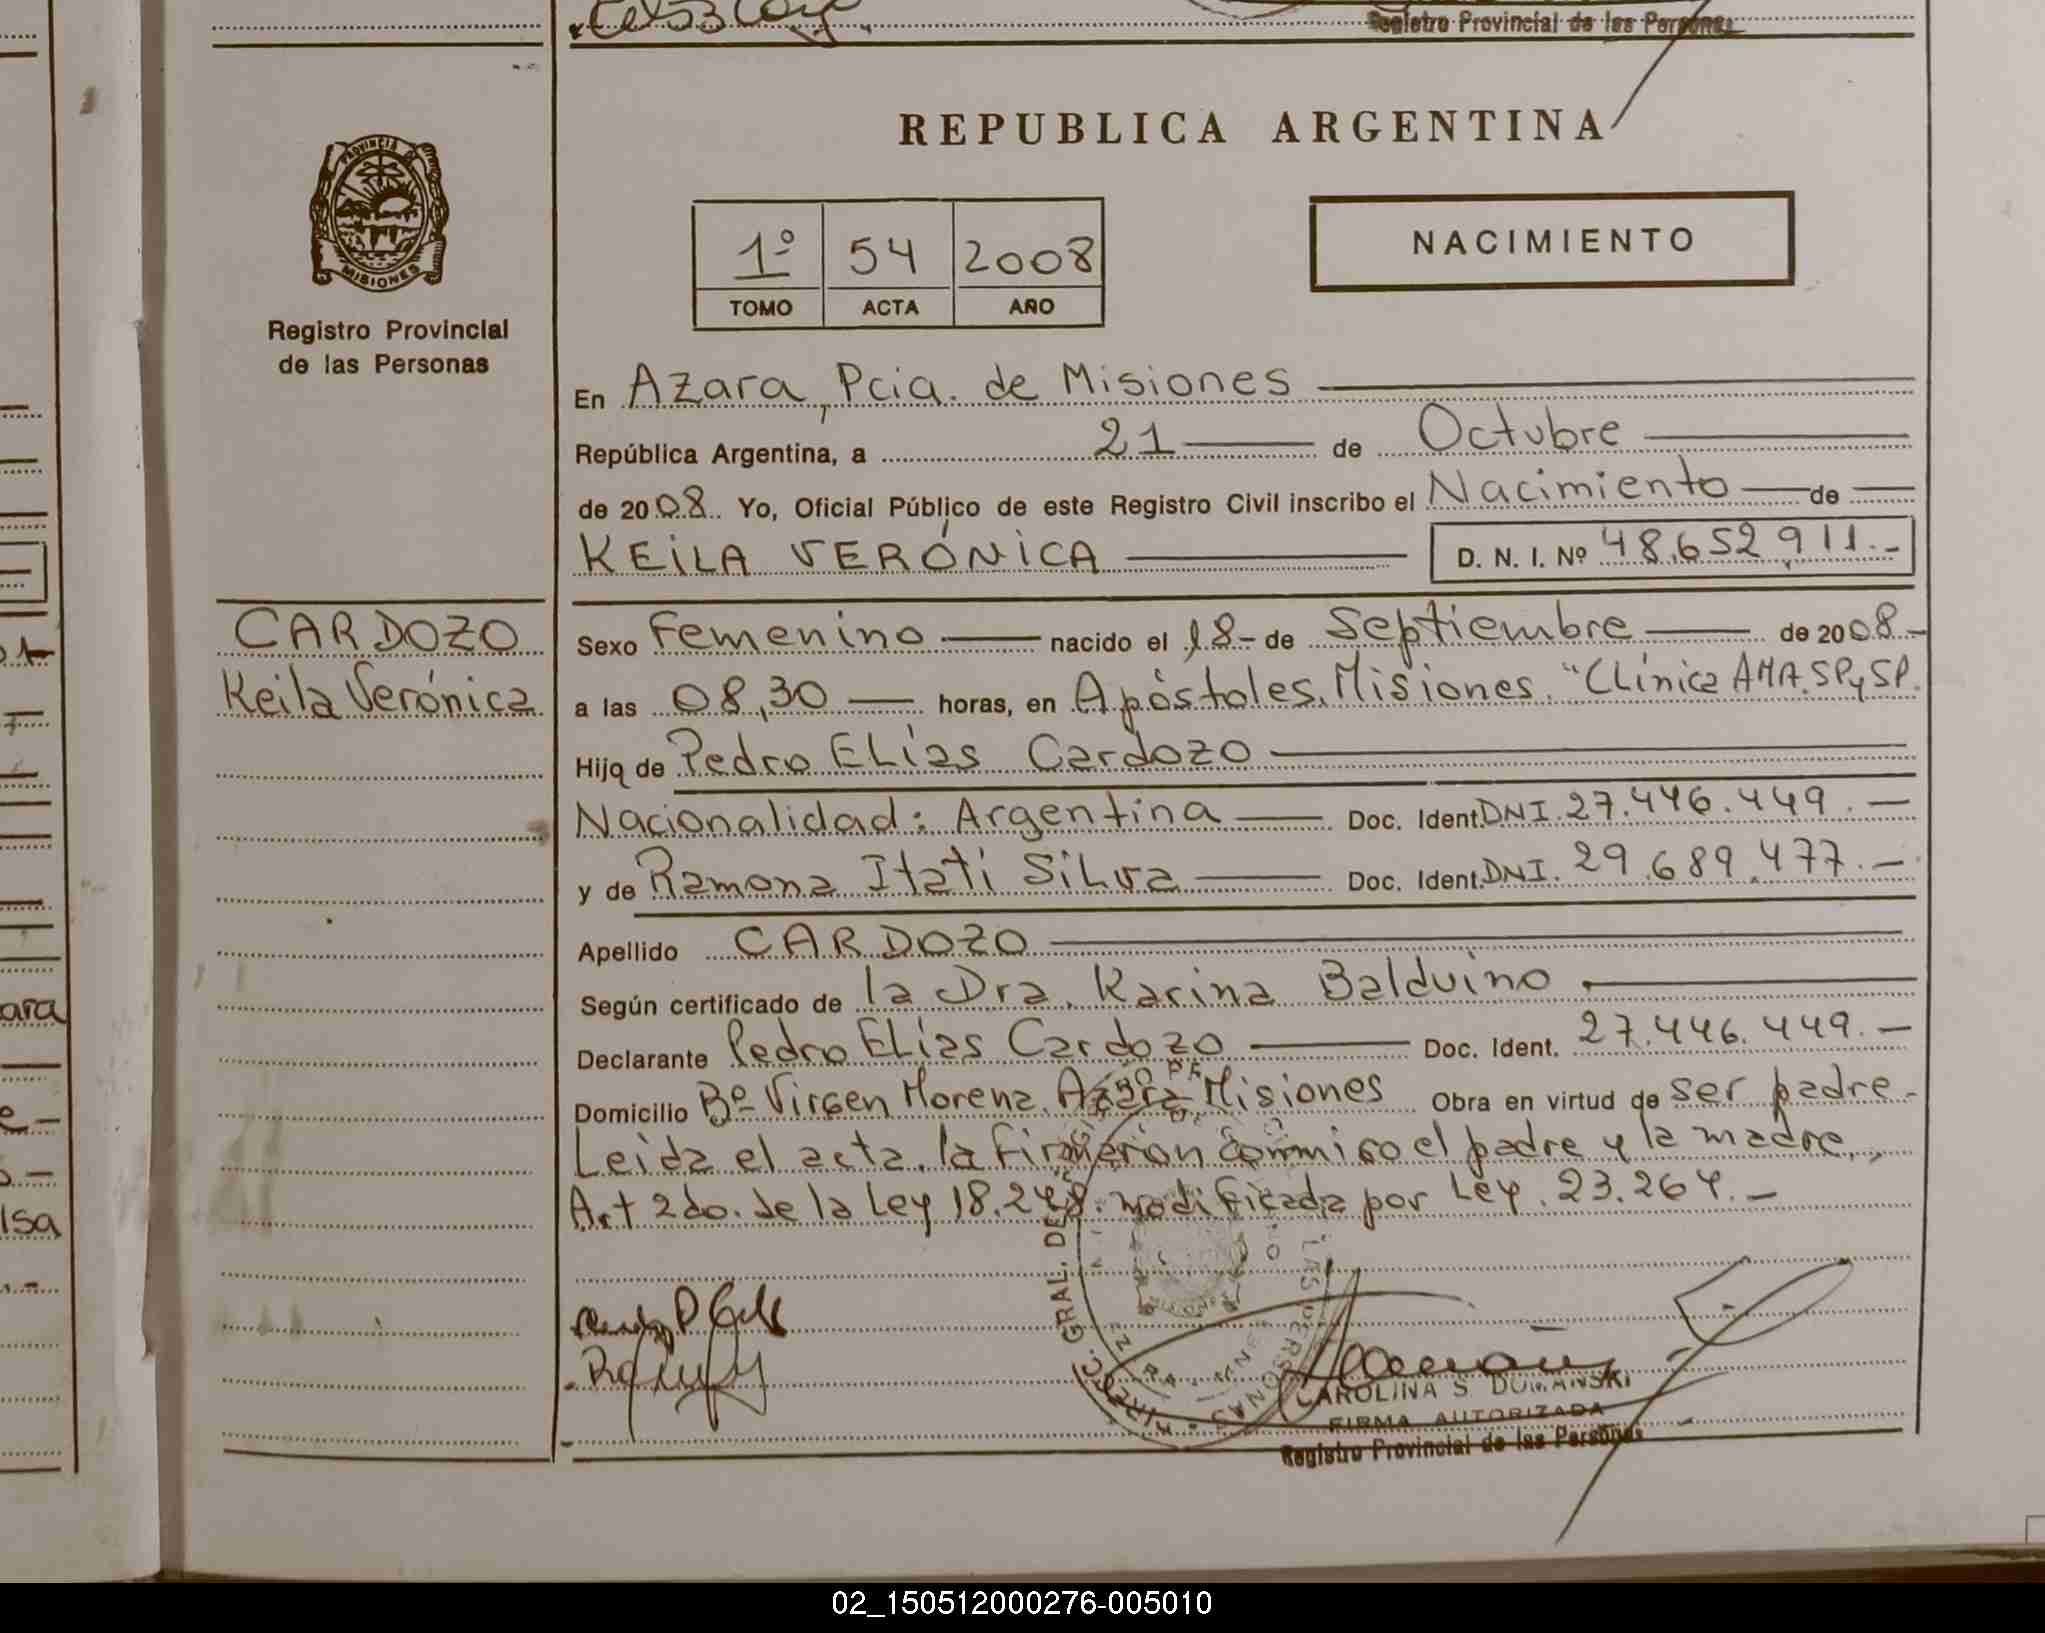 Registro Provincial de las Personas
PROVINCIA DE
MISIONES
Registro Provincial
de las Personas
REPUBLICA ARGENTINA
1º 54 2008
TOMO ACTA AÑO
NACIMIENTO
En Azara, Pcia. de Misiones
República Argentina, a 21 de Octubre
de 2008. Yo, Oficial Público de este Registro Civil inscribo el Nacimiento de
KEILA VERÓNICA D. N. I. Nº 48.652.911.-
CARDOZO
Keila Verónica
Sexo Femenino nacido el 18- de Septiembre de 2008.-
a las 08,30 horas, en Apóstoles, Misiones, "Clínica AMA.SPySP.
Hija de Pedro Elías Cardozo
Nacionalidad: Argentina Doc. Ident. DNI. 27.446.449.-
y de Ramona Itatí Silva Doc. Ident. DNI. 29.689.477.-
Apellido CARDOZO
Según certificado de la Dra. Karina Balduino
Declarante Pedro Elías Cardozo Doc. Ident. 27.446.449.-
Domicilio Bº Virgen Morena, Azara Misiones Obra en virtud de ser padre.-
Leida el acta, la firmaron conmigo el padre y la madre,
Art 2do. de la Ley 18.248. modificada por Ley. 23.264.-
CAROLINA S. DUMANSKI
FIRMA AUTORIZADA
Registro Provincial de las Personas
ara
lsa
02_150512000276-005010